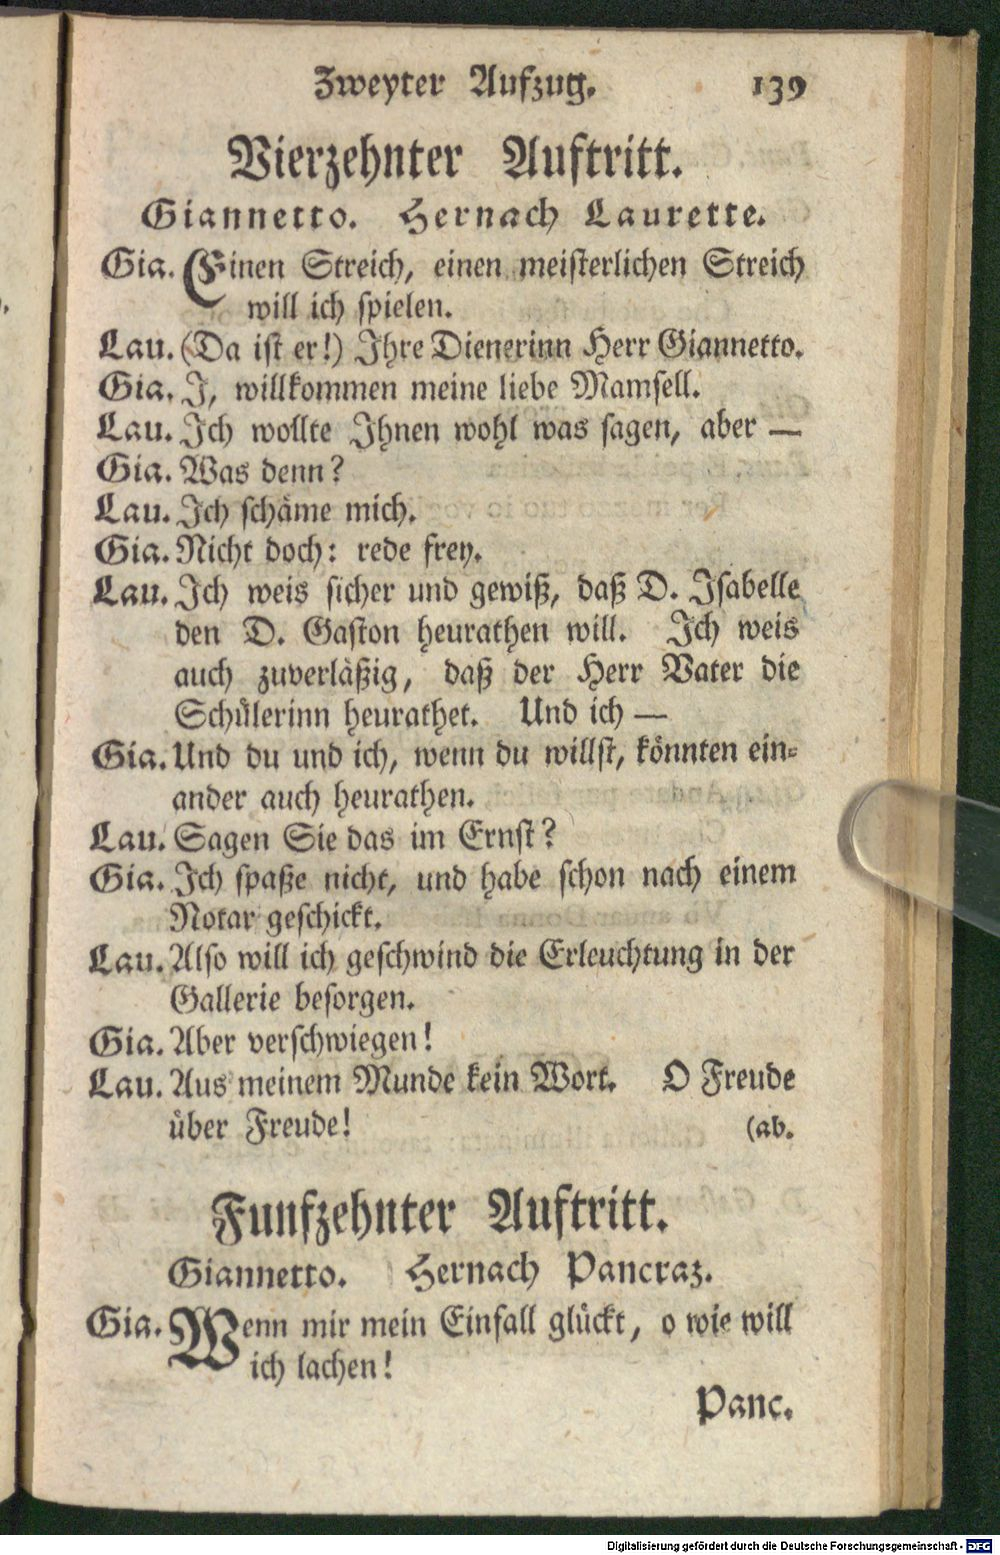 Zweyter Aufzug. 139
Vierzehnter Auftritt.
Giannetto. Hernach Laurette.
Gia. Einen Streich, einen meisterlichen Streich
will ich spielen.
Lau. (Da ist er!) Ihre Dienerinn Herr Giannetto.
Gia. J, willkommen meine liebe Mamsell.
Lau. Ich wollte Ihnen wohl was sagen, aber —
Gia. Was denn?
Lau. Ich schäme mich.
Gia. Nicht doch: rede frey.
Lau. Ich weis sicher und gewiß, daß D. Isabelle
den D. Gaston heurathen will. Ich weis
auch zuverläßig, daß der Herr Vater die
Schülerinn heurathet. Und ich —
Gia. Und du und ich, wenn du willst, könnten ein-
ander auch heurathen.
Lau. Sagen Sie das im Ernst?
Gia. Ich spaße nicht, und habe schon nach einem
Notar geschickt.
Lau. Also will ich geschwind die Erleuchtung in der
Gallerie besorgen.
Gia. Aber verschwiegen!
Lau. Aus meinem Munde kein Wort. O Freude
über Freude! (ab.
Funfzehnter Auftritt.
Giannetto. Hernach Pancraz.
Gia. Wenn mir mein Einfall glückt, o wie will
ich lachen!
Panc.
Digitalisierung gefördert durch die Deutsche Forschungsgemeinschaft - DFG